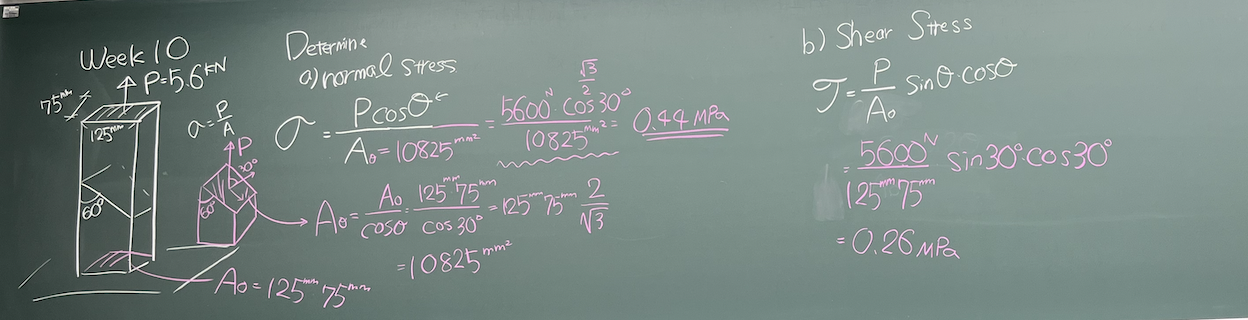 Week 10
P=5.6kN
75mm
125mm
60°
σ = P/A
P
30°
60°
A₀ = 125mm 75mm
Determine
a) normal stress
σ = Pcosθ / Aθ = 10825mm² = 5600N·cos30° / 10825mm² = 0.44 MPa
√3/2
Aθ = A₀/cosθ = 125mm 75mm / cos30° = 125mm 75mm 2/√3
= 10825mm²
b) Shear Stress
τ = P/A₀ sinθ·cosθ
= 5600N / 125mm 75mm sin30°·cos30°
= 0.26 MPa